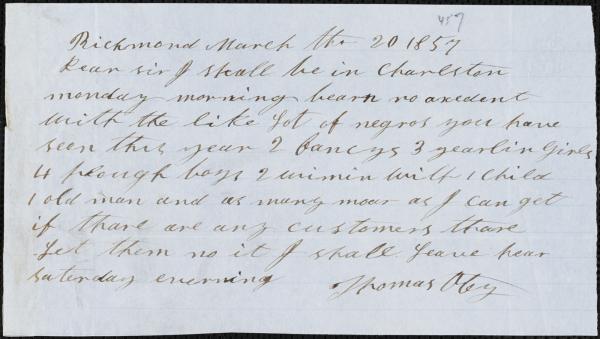 457
Richmond March the 20 1857
Dear sir I shall be in Charlston
monday morning bearn no axedent
with the like Lot of negros you have
seen this year 2 fancys 3 yearlin Girls
4 plough boys 2 wimin with 1 Child
1 old man and as many moar as I can get
if thare are any customers thare
Let them no it I shall Leave hear
saturday everning
Thomas